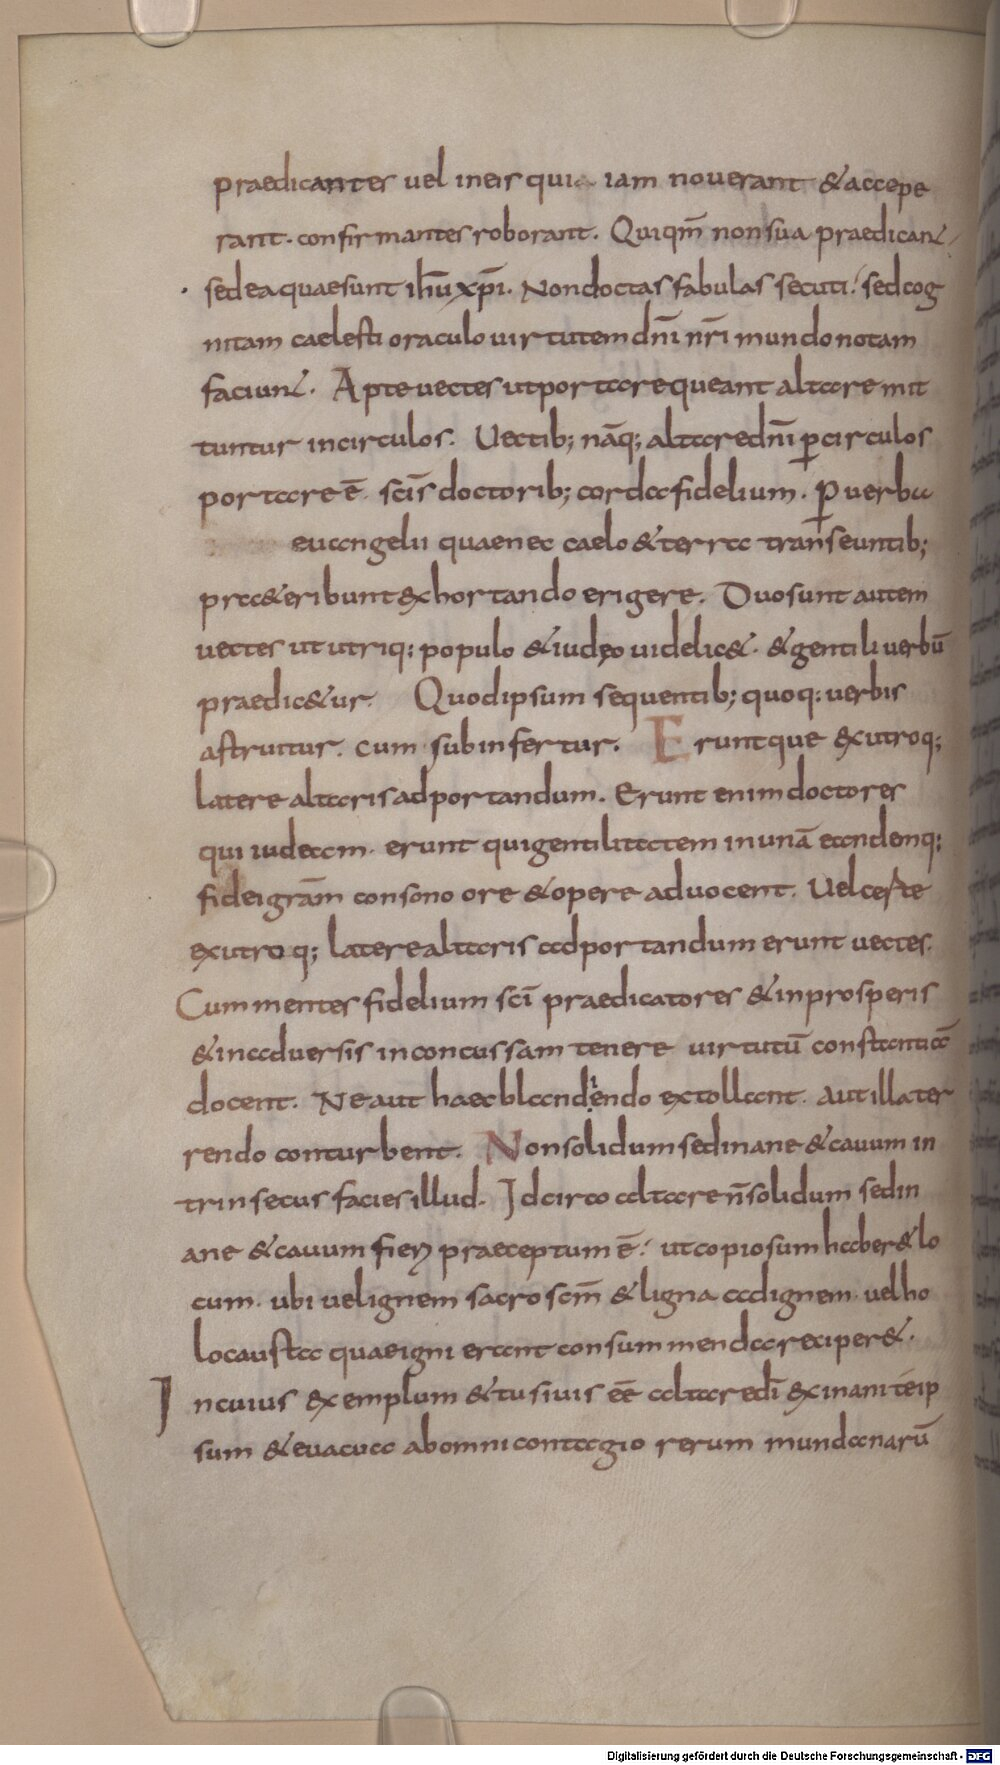 praedicantes uel in eis qui iam nouerant & accepe
rant. confirmantes roborant. Quiqm̄ non sua praedicant
sed ea quae sunt ih̄u xp̄i. Non doctas fabulas secuti. sed cog
nitam caelesti oraculo uirtutem dn̄i nr̄i mundo notam
faciunt. Apte uectes ut portare queant altare mit
tuntur in circulos. Uectib; nāq; altare dn̄i p̱ circulos
portare ē. scīs doctorib; corda fidelium. p̱ uerba
euangelii quae nec caelo & terra transeuntib;
praeteribunt exhortando erigere. Duo sunt autem
uectes ut utriq; populo & iudęo uidelic&. & gentili uerbū
praedic&ur. Quod ipsum sequentib; quoq; uerbis
astruitur. cum subinfertur. Eruntque ex utroq;
latere altaris ad portandum. Erunt enim doctores
qui iudeam. erunt qui gentilitatem in unā eandemq;
fidei grām consono ore & opere aduocent. Uel certe
ex utroq; latere altaris ad portandum erunt uectes.
Cum mentes fidelium scī praedicatores & in prosperis
& in aduersis inconcussam tenere uirtutū constantiā
docent. Ne aut haec blandiendo extollant. aut illa ter
rendo conturbent. Non solidum sed inane & cauum in
trinsecus facies illud. Idcirco altare n̄ solidum sed in
ane & cauum fieri praeceptum ē. ut copiosum haber& lo
cum. ubi uel ignem sacrosc̄m & ligna ad ignem. uel ho
locausta quae igni erant consummenda reciper&.
In cuius exemplum & tu si uis eē altare dī exinani te ip
sum & euacua ab omni contagio rerum mundanarū
Digitalisierung gefördert durch die Deutsche Forschungsgemeinschaft - DFG